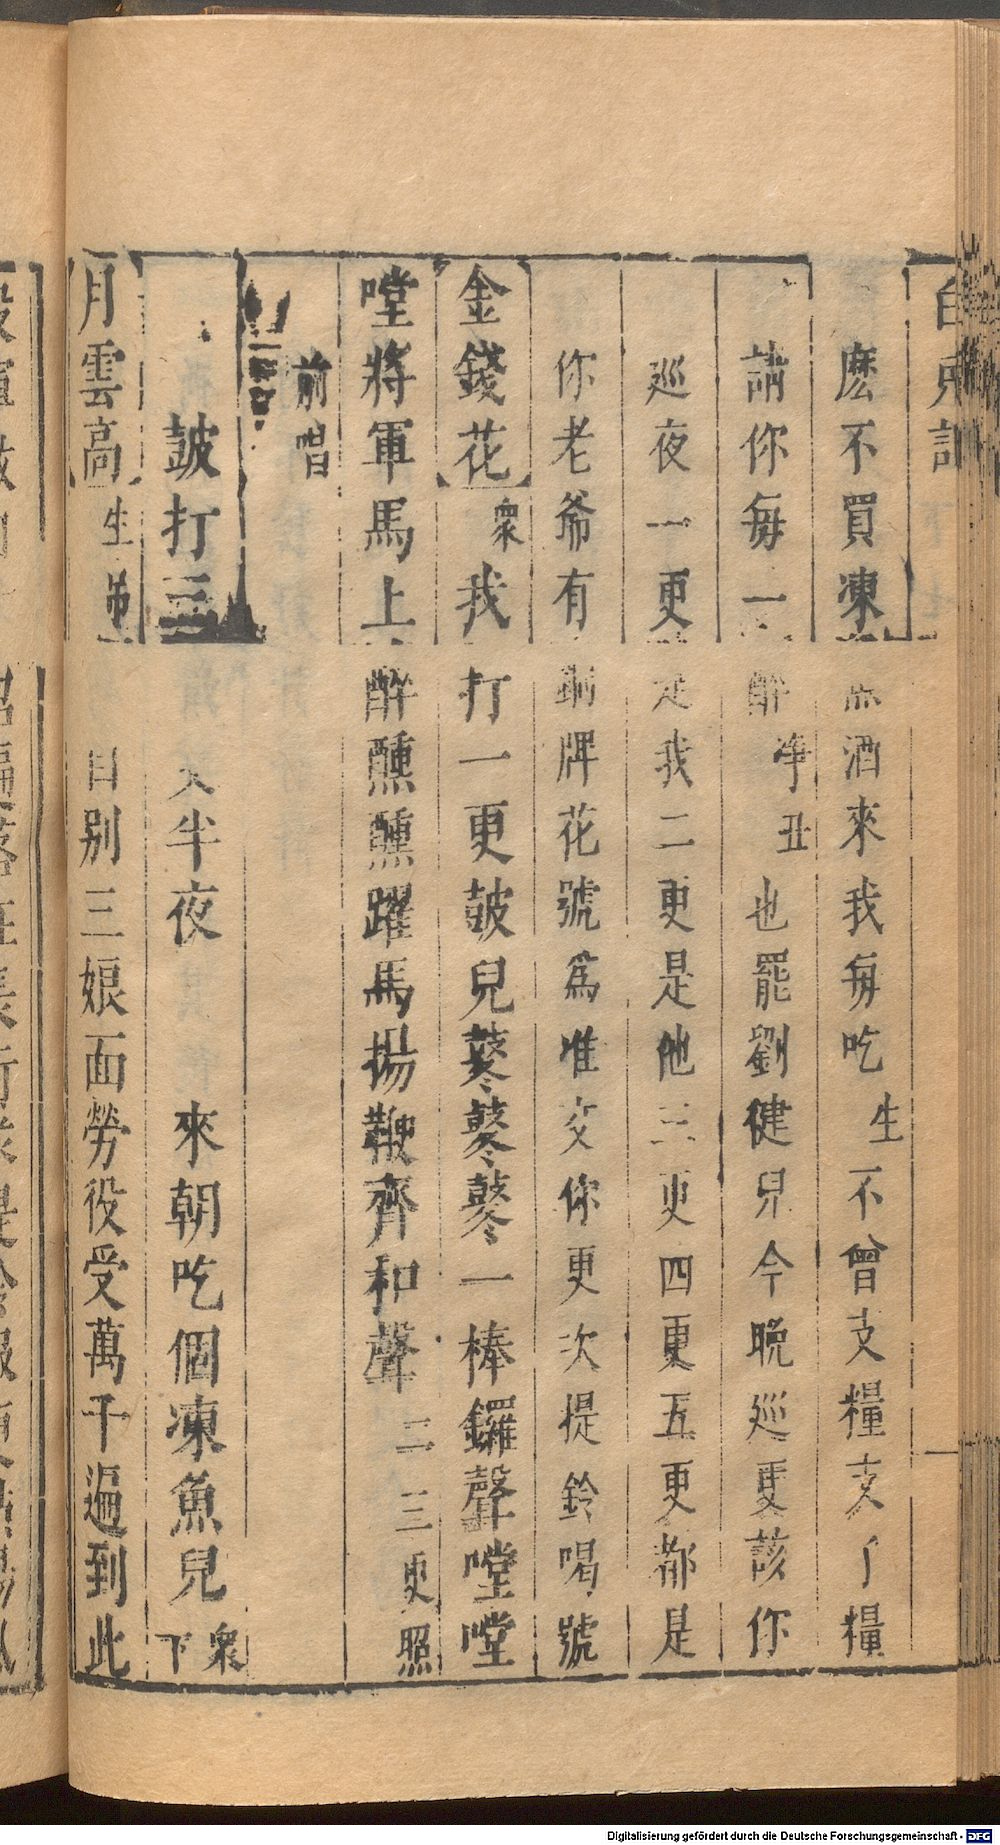 白兔記
麽不買凍 酒來我每吃生不曾支糧支了糧
請你每一醉淨丑也罷劉健兒今晚巡更該你
巡夜一更是我二更是他三更四更五更都是
你老爺有銅牌花號爲准交你更次提鈴喝號
金錢花衆我打一更鼓兒鼕鼕鼕一棒鑼聲嘡嘡
嘡將軍馬上醉醺醺躍馬揚鞭齊和聲二三更照
前唱
鼓打三 半夜 來朝吃個凍魚兒衆下
月雲高生 自別三娘面勞役受萬千遍到此
Digitalisierung gefördert durch die Deutsche Forschungsgemeinschaft - DFG